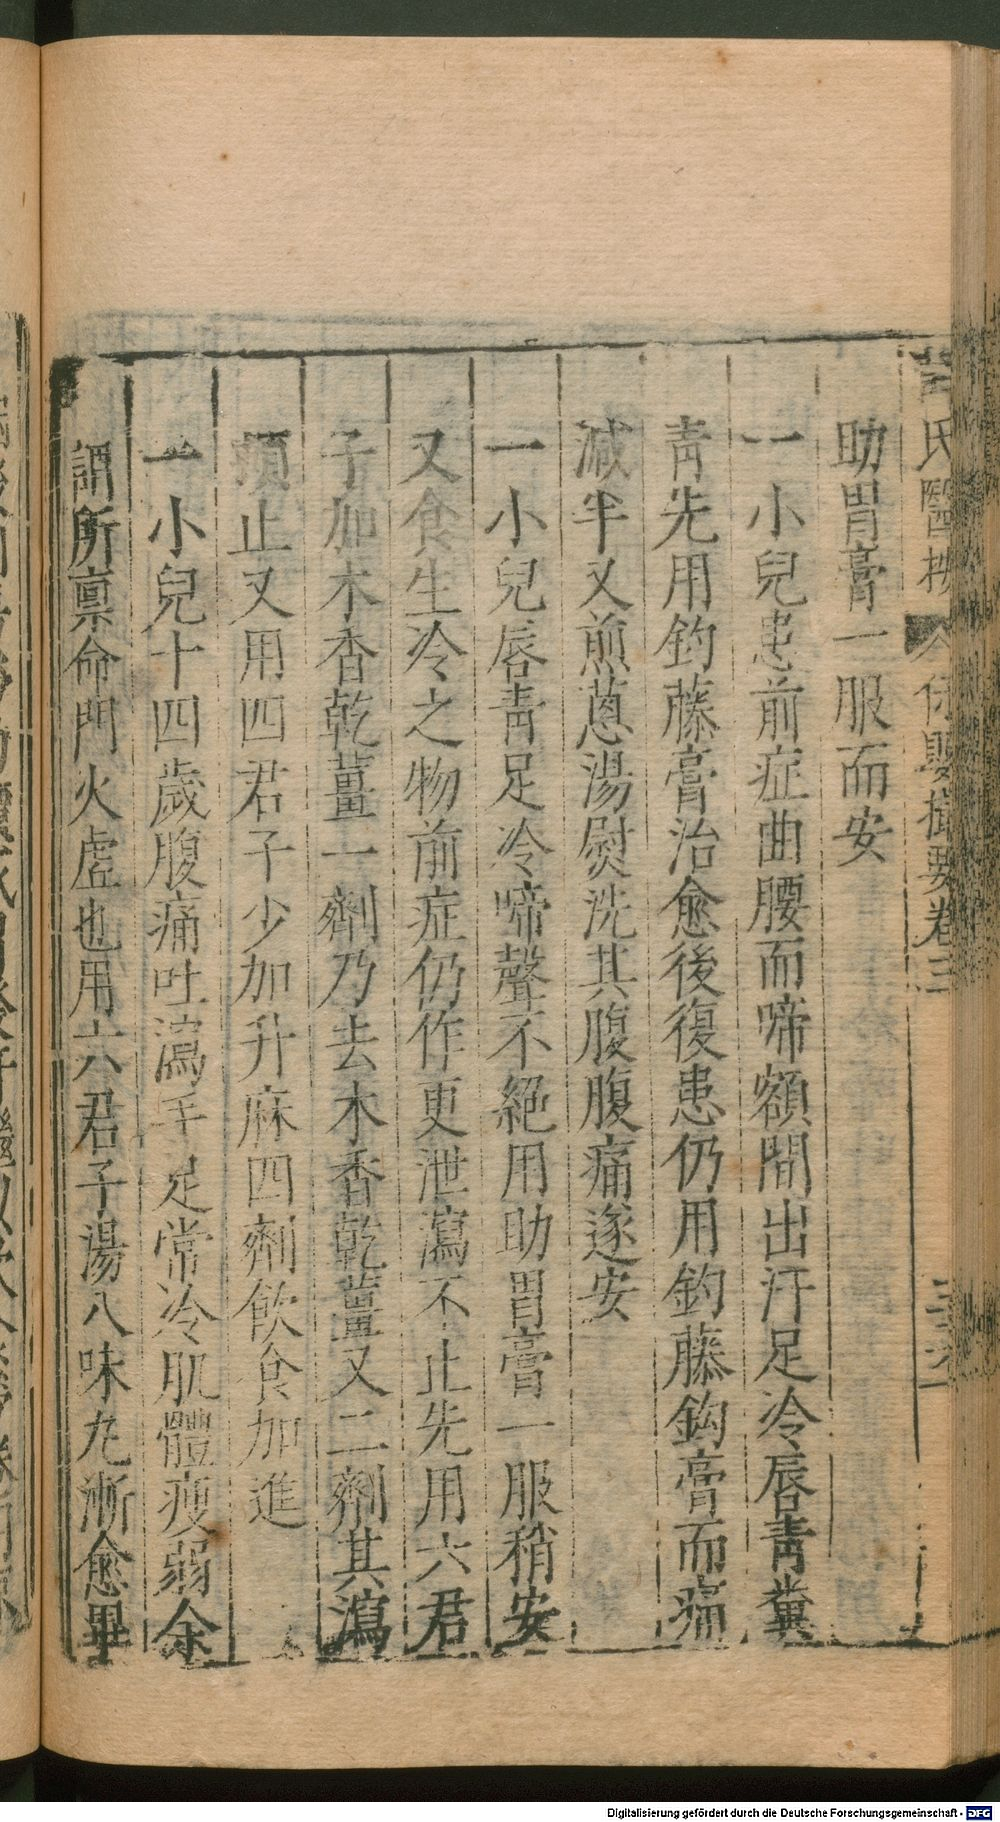 薛氏醫按 保嬰撮要卷三
助胃膏一服而安
一小兒患前症曲腰而啼額間出汗足冷唇青糞
青先用釣藤膏治愈後復患仍用釣藤鈎膏而痛
減半又煎蔥湯熨洗其腹腹痛遂安
一小兒唇青足冷啼聲不絕用助胃膏一服稍安
又食生冷之物前症仍作更泄瀉不止先用六君
子加木香乾薑一劑乃去木香乾薑又二劑其瀉
頓止又用四君子少加升麻四劑飲食加進
一小兒十四歲腹痛吐瀉手足常冷肌體瘦弱余
謂所稟命門火虛也用六君子湯八味丸漸愈畢
Digitalisierung gefördert durch die Deutsche Forschungsgemeinschaft - DFG